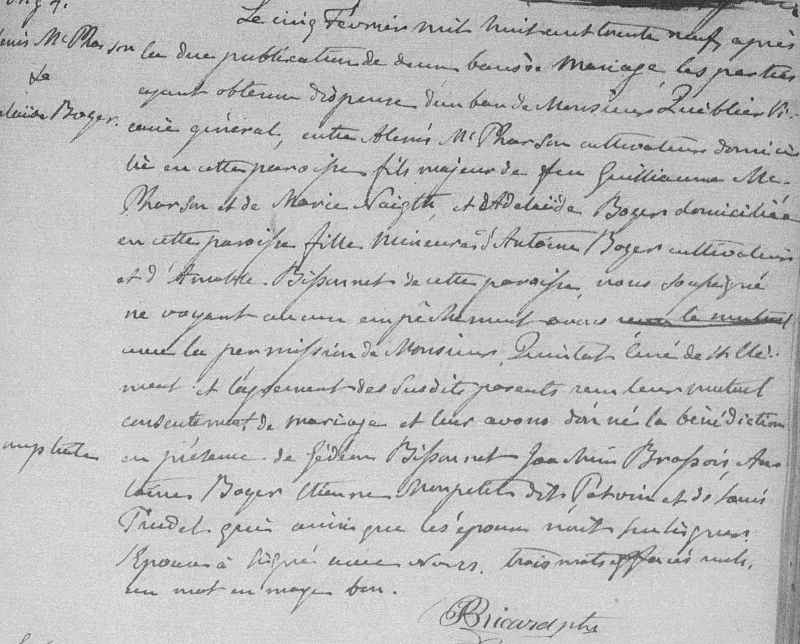 Le cinq Février mil huit cent trente neuf, après
la due publication de deux bans de Mariage, les parties
ayant obtenu dispense d'un ban de Monsieur Quiblier Vi-
caire général, entre Alexis McPharson cultivateur domici-
lié en cette paroisse fils majeur de feu Guilliaume Mc-
Pharson et de Marie Naigth, et d'Adelaïde Boyer domiciliée
en cette paroisse fille mineure d'Antoine Boyer cultivateur
et d'Amable Bissonnet de cette paroisse, nous soussigné
ne voyant aucun empêchement avons le mutuel
avec la permission de Monsieur Quintal Curé de St Clé-
ment et l'agrément des susdits parents reçu leur mutuel
consentement de mariage et leur avons donné la bénédiction
en présence de Gédéon Bissonnet Joachim Brossois, An-
toine Boyer Etienne Monpetit dit Potvin et de Louis
Trudel qui ainsi que les époux n'ont su signer.
L'épouse à signé avec Nous. trois mots effacés nuls,
un mot en marge bon.
Alexis McPharson
&
Adelaïde Boyer.
Bricard ptre